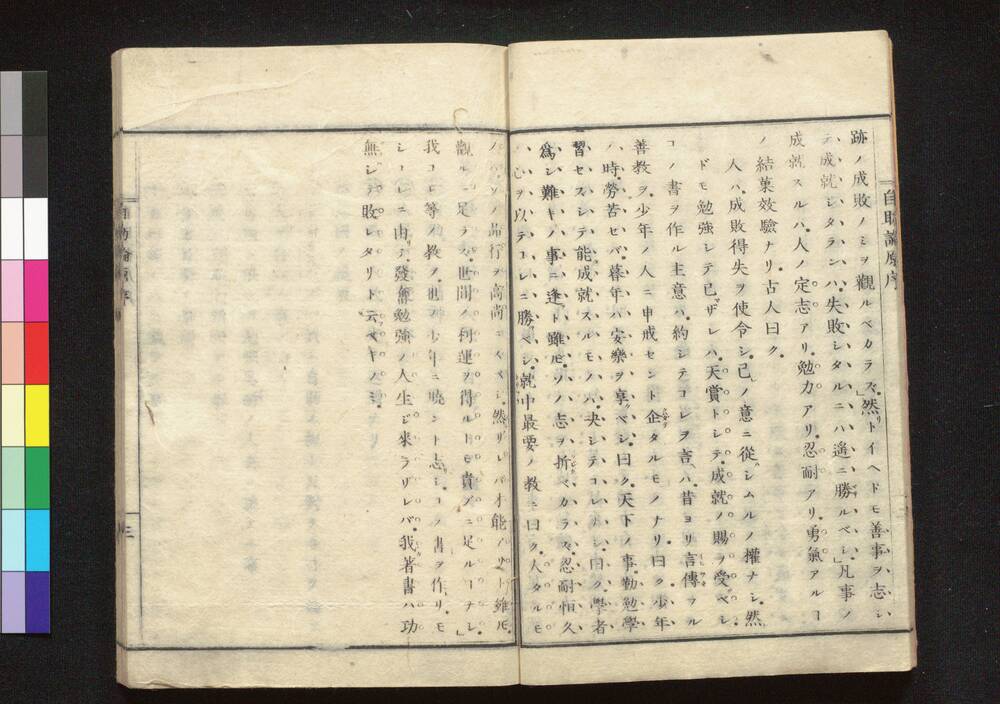 自助論原序
跡ノ成敗ノミヲ觀ルベカラズ、然リトイヘドモ善事ヲ志シ
テ成就シタランハ、失敗シタルニハ遙ニ勝ルベシ」凡事ノ
成就スルハ、人ノ定志アリ、勉力アリ、忍耐アリ、勇氣アルコ
ノ結菓效驗ナリ、古人曰ク、
人ハ、成敗得失ヲ使令シ、己ノ意ニ從ハシムルノ權ナシ、然
ドモ勉強シテ已ザレハ、天賞トシテ、成就ノ賜ヲ受ベシ、
コノ書ヲ作ル主意ハ、約シテコレヲ言ハ、昔ヨリ言傳フル
善教ヲ、少年ノ人ニ申戒セント企タルモノナリ、曰ク、少年
ノ時、勞苦セバ、暮年ハ安樂ヲ享ベシ、曰ク、天下ノ事、勤勉學
習セズシテ、能成就スルモノハ、決シテコレナシ、曰ク、學者
爲シ難キノ事ニ逢ト雖モ、ソノ志ヲ折ベカラズ、忍耐恒久
ノ心ヲ以テコレニ勝ベシ、就中最要ノ教ニ曰ク、人タルモ
ノハ、ソノ品行ヲ高尚ニスベシ、然ラザレバ才能アリト雖モ、
觀ルニ足ラズ、世間ノ利運ヲ得ルトモ、貴ブニ足ルコナシ」
我コレ等ノ教ヲ、世ノ少年ニ曉シント志シ、コノ書ヲ作リ、モ
シコレニ由テ、發奮勉強ノ人生ジ來ラザレバ、我著書ハ功
無シ、敗レタリト云ベキノミ、
三